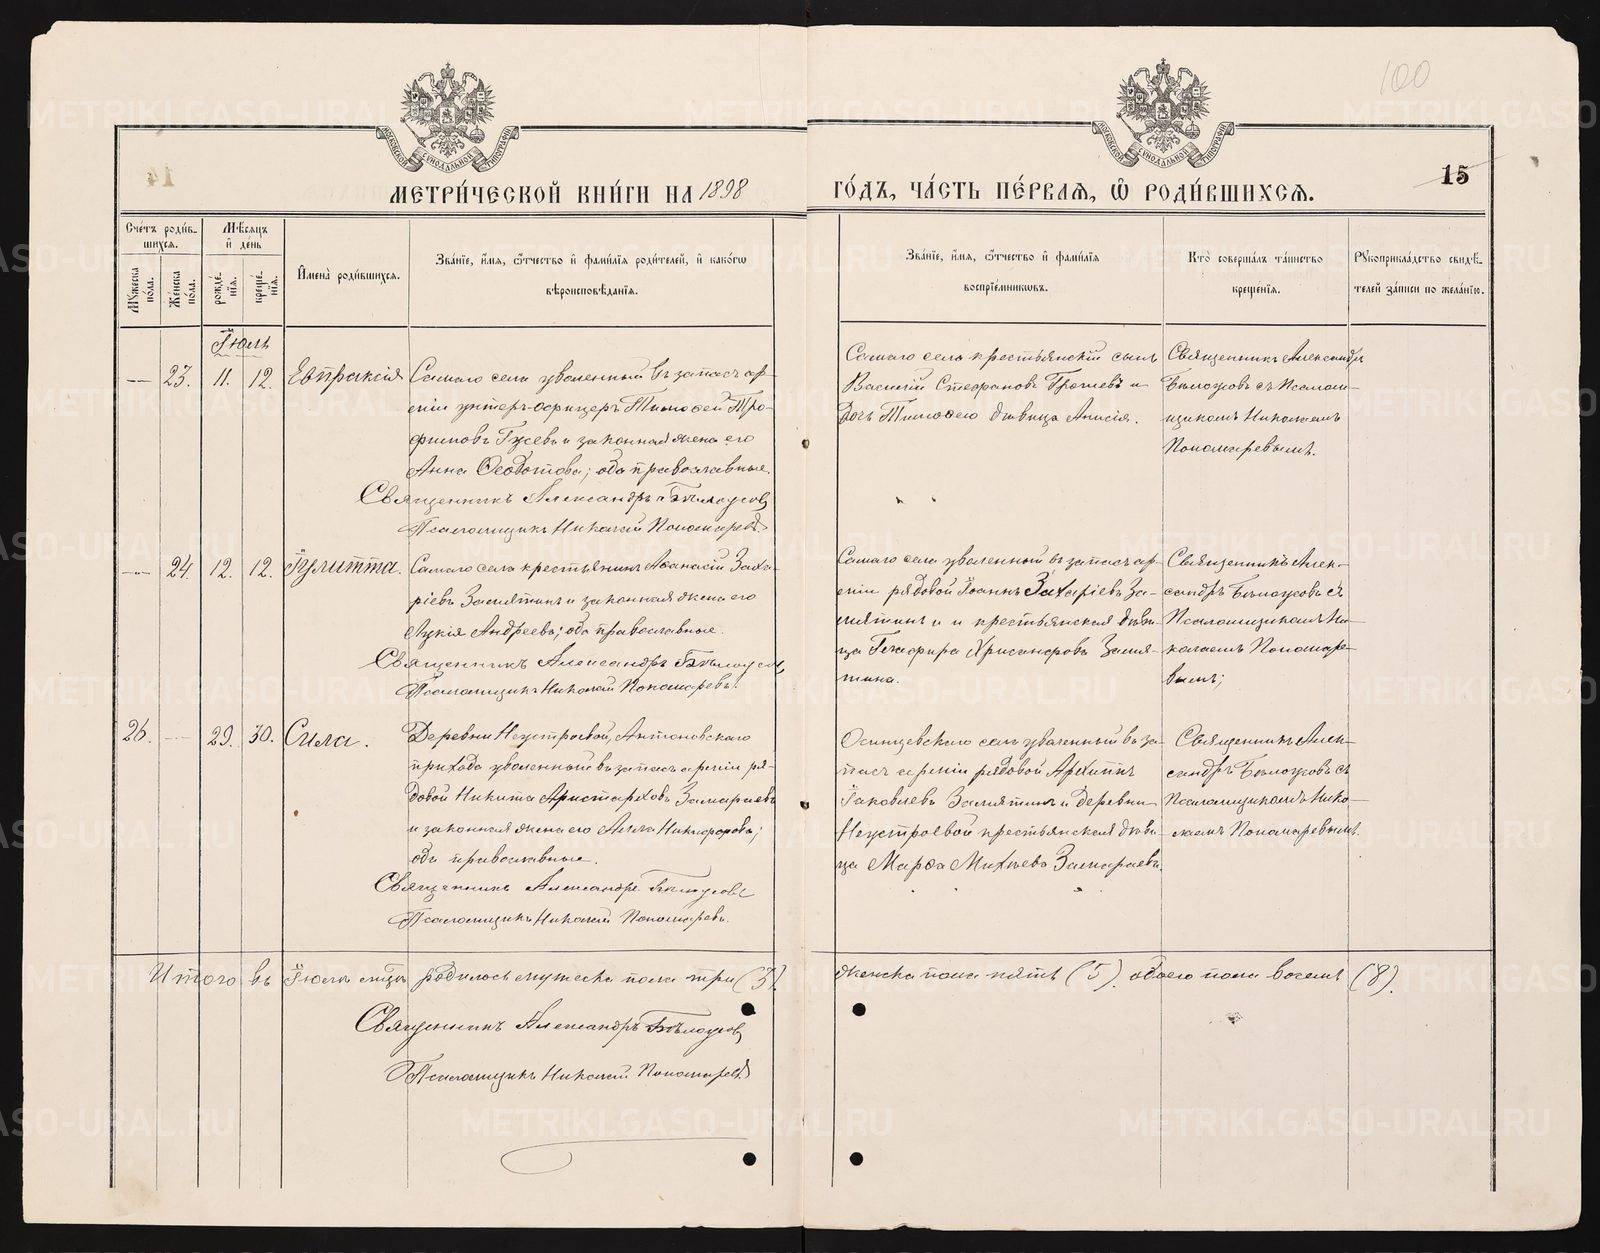 100
МОСКОВСКОЙ СѴНОДАЛЬНОЙ ТИПОГРАФІИ
МОСКОВСКОЙ СѴНОДАЛЬНОЙ ТИПОГРАФІИ
14
15
МЕТРИ́ЧЕСКОЙ КНИ́ГИ НА 1898
ГО́ДЪ, ЧА́СТЬ ПЕ́РВАЯ, Ѽ РОДИ́ВШИХСЯ.
Сче́тъ роди́в-
шихся.
Мѣ́сяцъ
и҆ де́нь
Му́жеска по́ла.
Же́нска по́ла.
рожде́-нїя.
креще́-нїя.
И҆мена̀ роди́вшихся.
Зва́нїе, и҆́мя, ѻ҆́тчество и҆ фами́лїя роди́телей, и҆ како́гѡ
вѣроисповѣ́данїя.
Зва́нїе, и҆́мя, ѻ҆́тчество и҆ фами́лїя
воспрїе́мниковъ.
Кто̀ соверша́лъ та́инство
креще́нїя.
Рукоприкла́дство свидѣ́-
телей за́писи по жела́нїю.
Іюль
— 23. 11. 12. Евпраксія
Самаго села уволенный въ запасъ ар-
міи унтеръ-офицеръ Тимоѳей Тро-
фимовъ Гусевъ и законная жена его
Анна Ѳеодотова; оба православные.
Священникъ Александръ Бѣлоусовъ
Псаломщикъ Николай Пономаревъ
Самаго села крестьянскій сынъ
Василій Стефановъ и
дочь Тимоѳею дѣвица Анисія.
Священникъ Александръ
Бѣлоусовъ съ Псалом-
щикомъ Николаемъ
Пономаревымъ.
— 24. 12. 12. Іулитта.
Самаго села крестьянинъ Аѳанасій Заха-
ріевъ Замятинъ и законная жена его
Лукія Андреева; оба православные.
Священникъ Александръ Бѣлоусовъ
Псаломщикъ Николай Пономаревъ.
Самаго села уволенный въ запасъ ар-
міи рядовой Іоаннъ Захаріевъ За-
мятинъ и и крестьянская дѣви-
ца Глафира Хрисанфова Замя-
тина.
Священникъ Алек-
сандръ Бѣлоусовъ съ
Псаломщикомъ Ни-
колаемъ Пономаре-
вымъ;
26. — 29. 30. Сила.
Деревни Неустроевой, Антоновскаго
прихода уволенный въ запасъ арміи ря-
довой Никита Аристарховъ Замараевъ
и законная жена его Алла Никифорова;
оба православные.
Священникъ Александръ Бѣлоусовъ
Псаломщикъ Николай Пономаревъ.
Осинцевскаго села уволенный въ за-
пасъ арміи рядовой Архиппъ
Іаковлевъ Замятинъ и деревни
Неустроевой крестьянская дѣви-
ца Марѳа Михѣева Замараева.
Священникъ Алек-
сандръ Бѣлоусовъ съ
Псаломщикомъ Нико-
лаемъ Пономаревымъ.
Итого въ Іюлѣ мцѣ родилось мужеска пола три (3).
женска пола пять (5). обоего пола восемь (8).
Священникъ Александръ Бѣлоусовъ
Псаломщикъ Николай Пономаревъ
METRIKI.GASO-URAL.RU